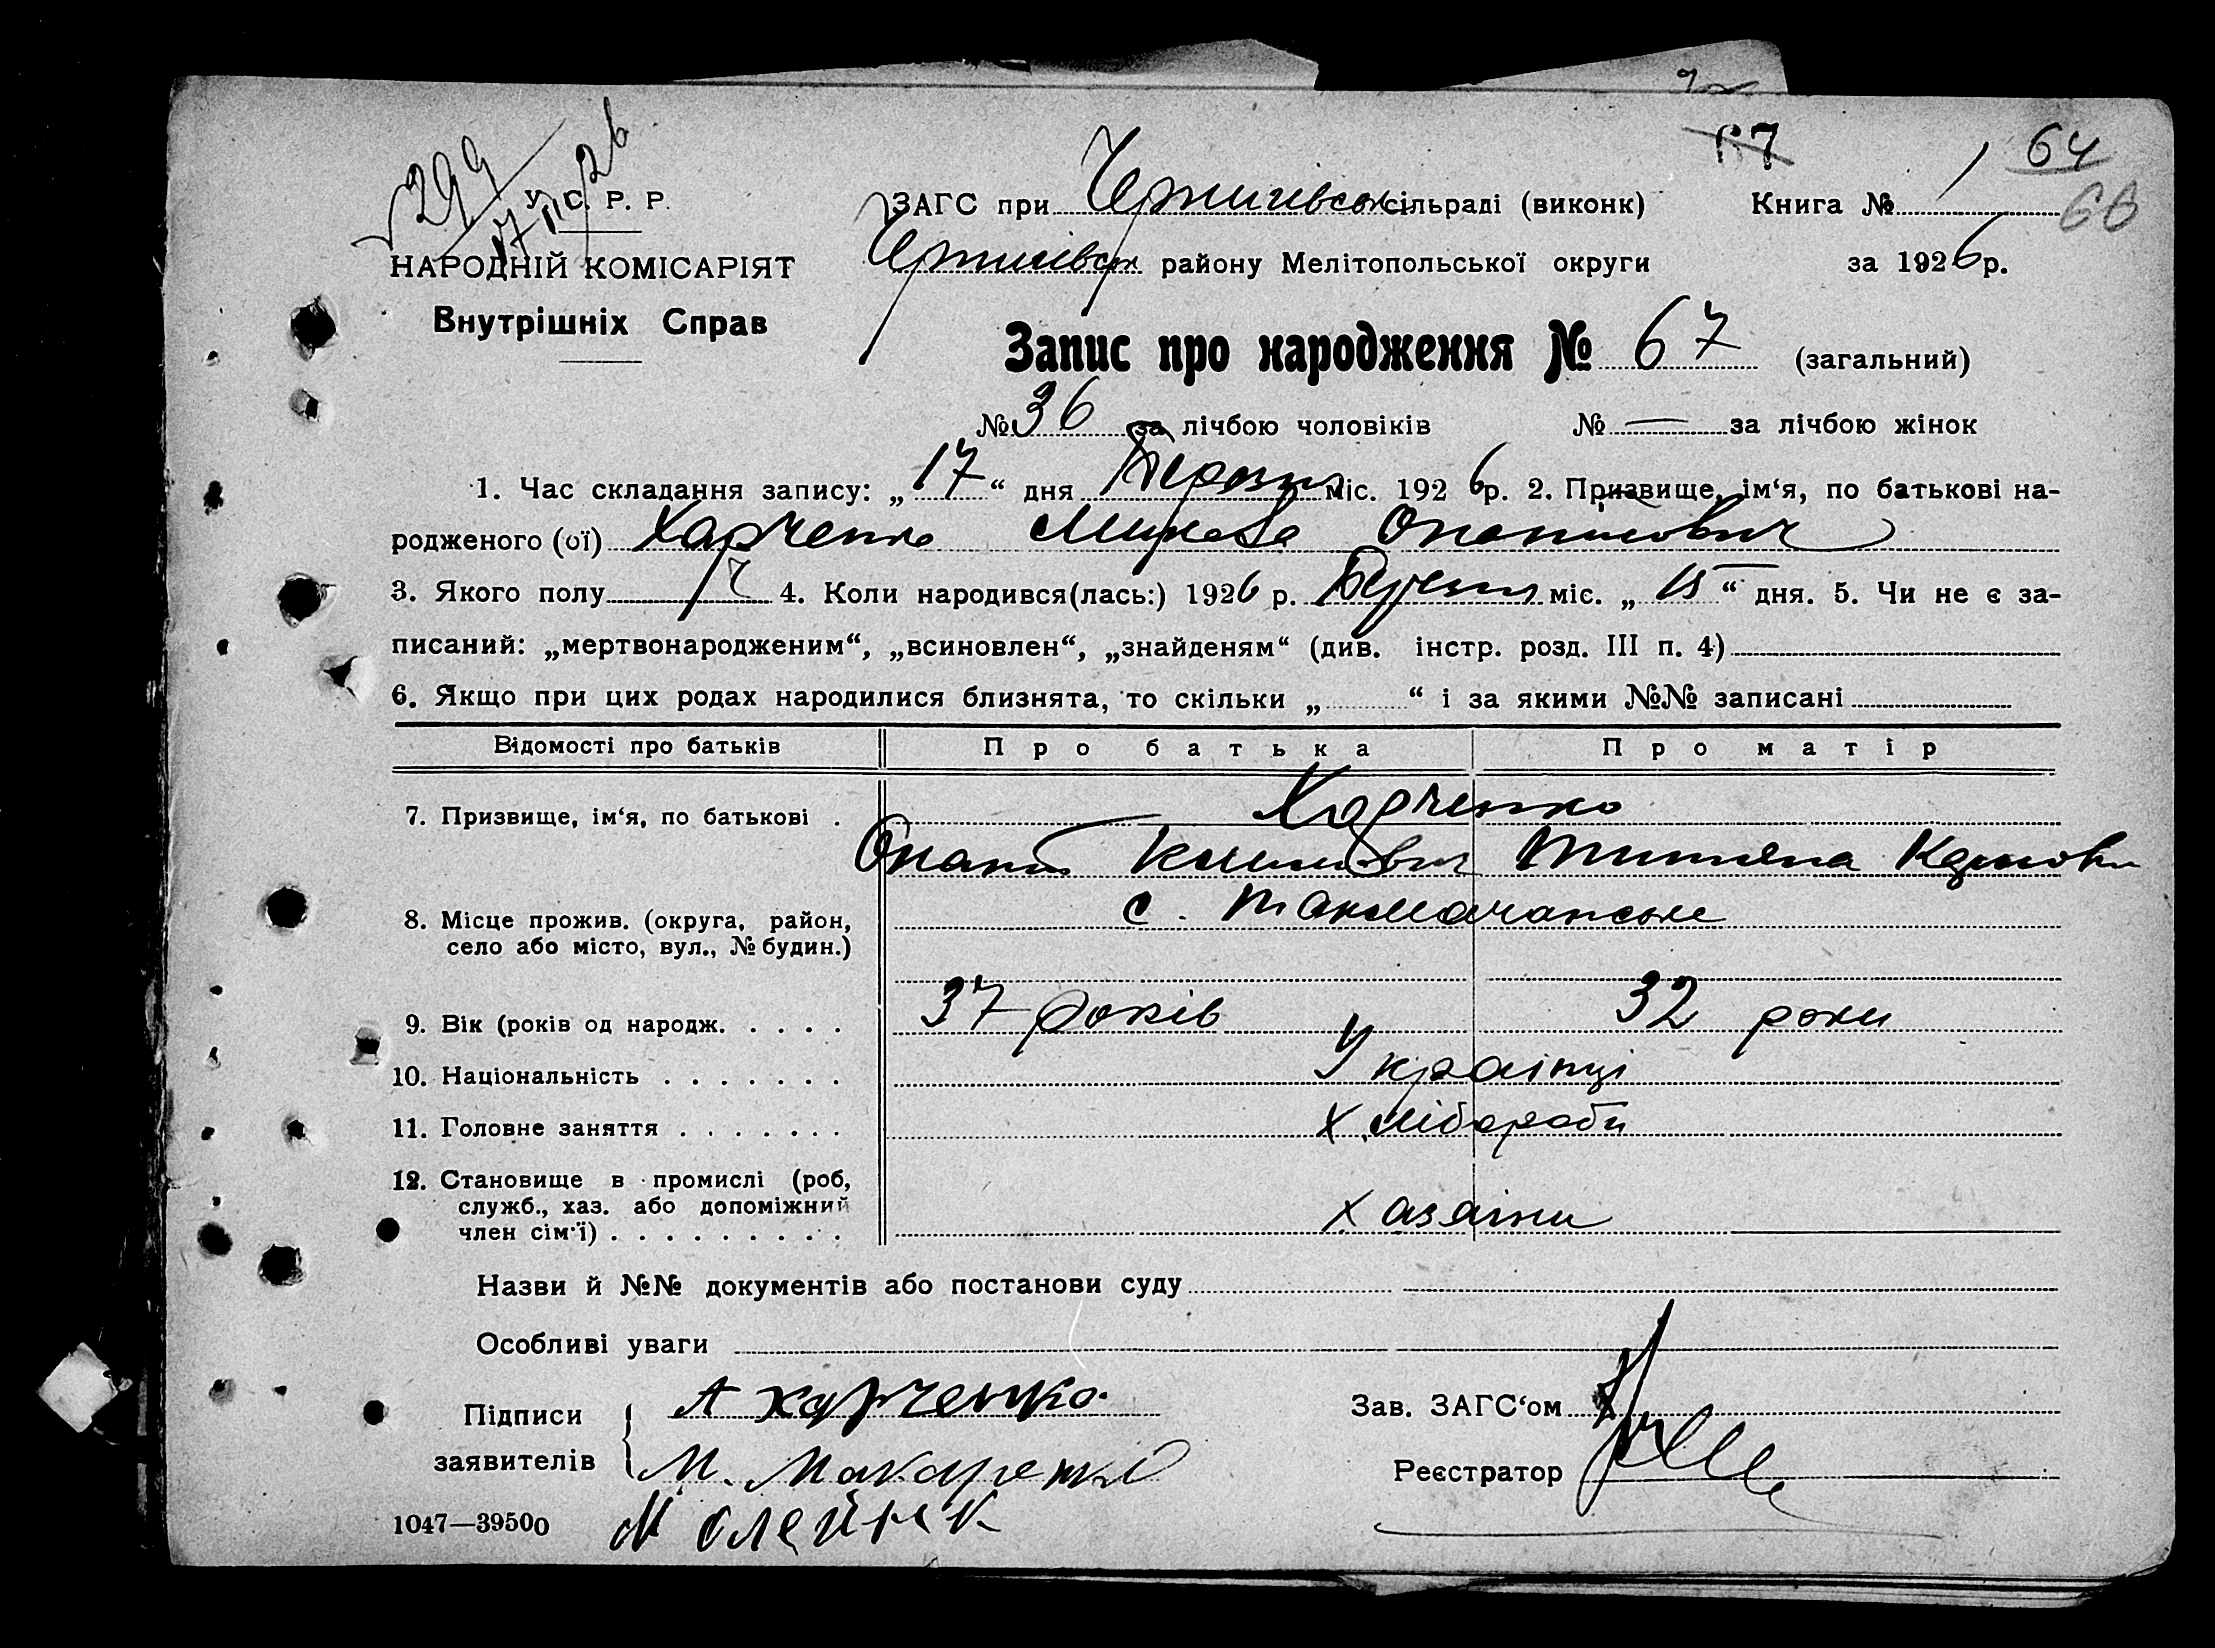 67 64
66
299
17/II 26
У. С. Р. Р.
НАРОДНІЙ КОМІСАРІЯТ
Внутрішніх Справ
ЗАГС при Чернигівськ сільраді (виконк) Книга № 1
Чернигівськ району Мелітопольської округи за 1926 р.
Запис про народження № 67 (загальний)
№ 36 за лічбою чоловіків № — за лічбою жінок
1. Час складання запису: „17“ дня Березня міс. 1926 р. 2. Призвище, ім‘я, по батькові на-
родженого (ої) Харченко Опанасович
3. Якого полу ч 4. Коли народився(лась:) 1926 р. Березня міс. „15“ дня. 5. Чи не є за-
писаний: „мертвонародженим“, „всиновлен“, „знайденям“ (див. інстр. розд. III п. 4)
6. Якщо при цих родах народилися близнята, то скільки „ “ і за якими №№ записані
Відомості про батьків Про батька Про матір
7. Призвище, ім‘я, по батькові . Харченко
Опанас Климович Титяна
8. Місце прожив. (округа, район, с. Токмачанське
село або місто, вул., № будин.)
9. Вік (років од народж. . . . . 37 років 32 роки
10. Національність . . . . . . . Українці
11. Головне заняття . . . . . . . Хлібороби
12. Становище в промислі (роб,
служб., хаз. або допоміжний
член сім‘ї) . . . . . . . . . . Хазяіни
Назви й №№ документів або постанови суду
Особливі уваги
Підписи А Харченко Зав. ЗАГС‘ом
заявителів М. Макаренко Реєстратор
1047—39500 М Олейнік